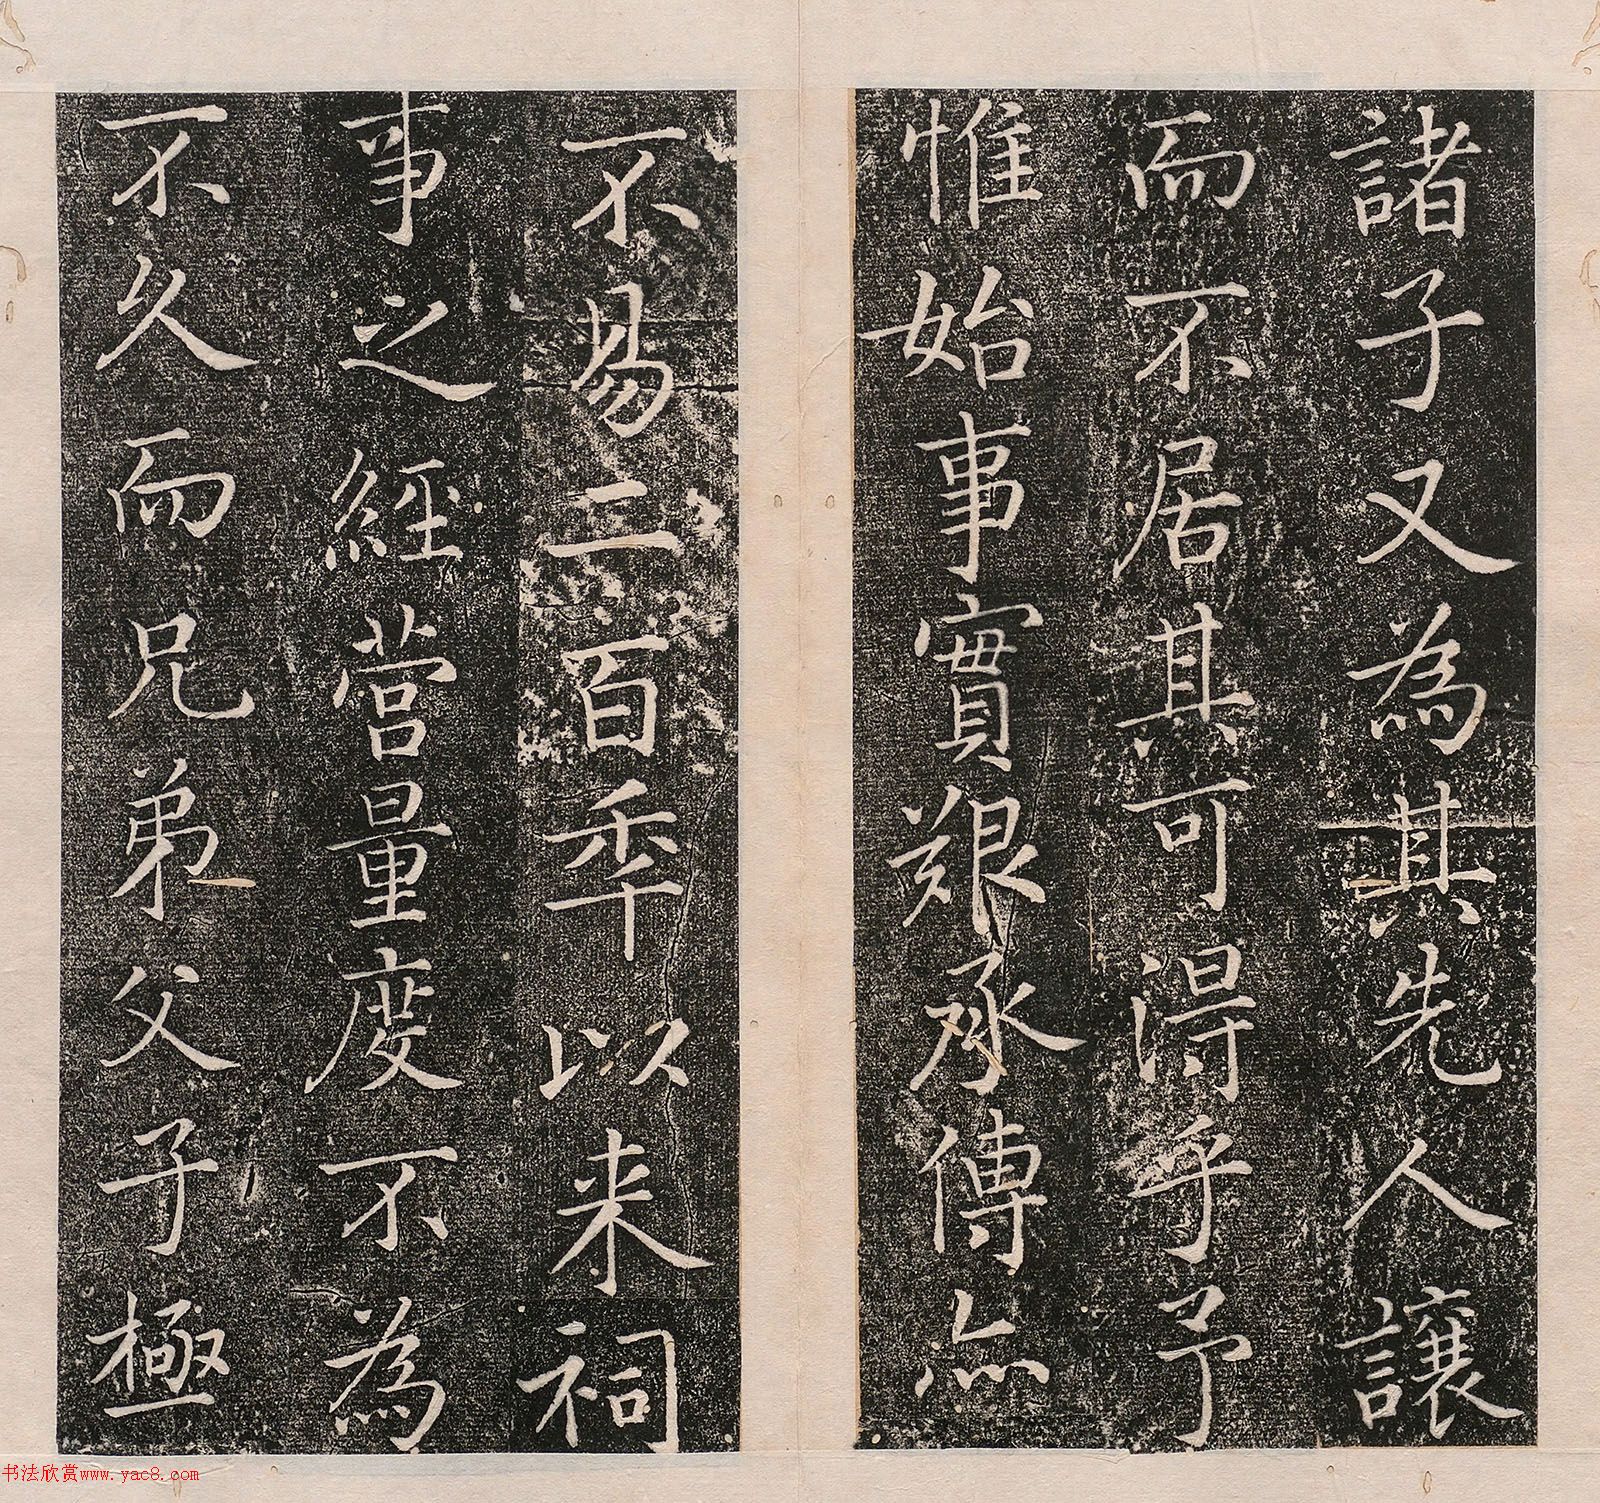 諸子又為其先人讓
而不居其可得乎予
惟始事實艱承傳亦
不易二百年以来祠
事之經營量度不為
不久而兄弟父子極
书法欣赏www.yac8.com